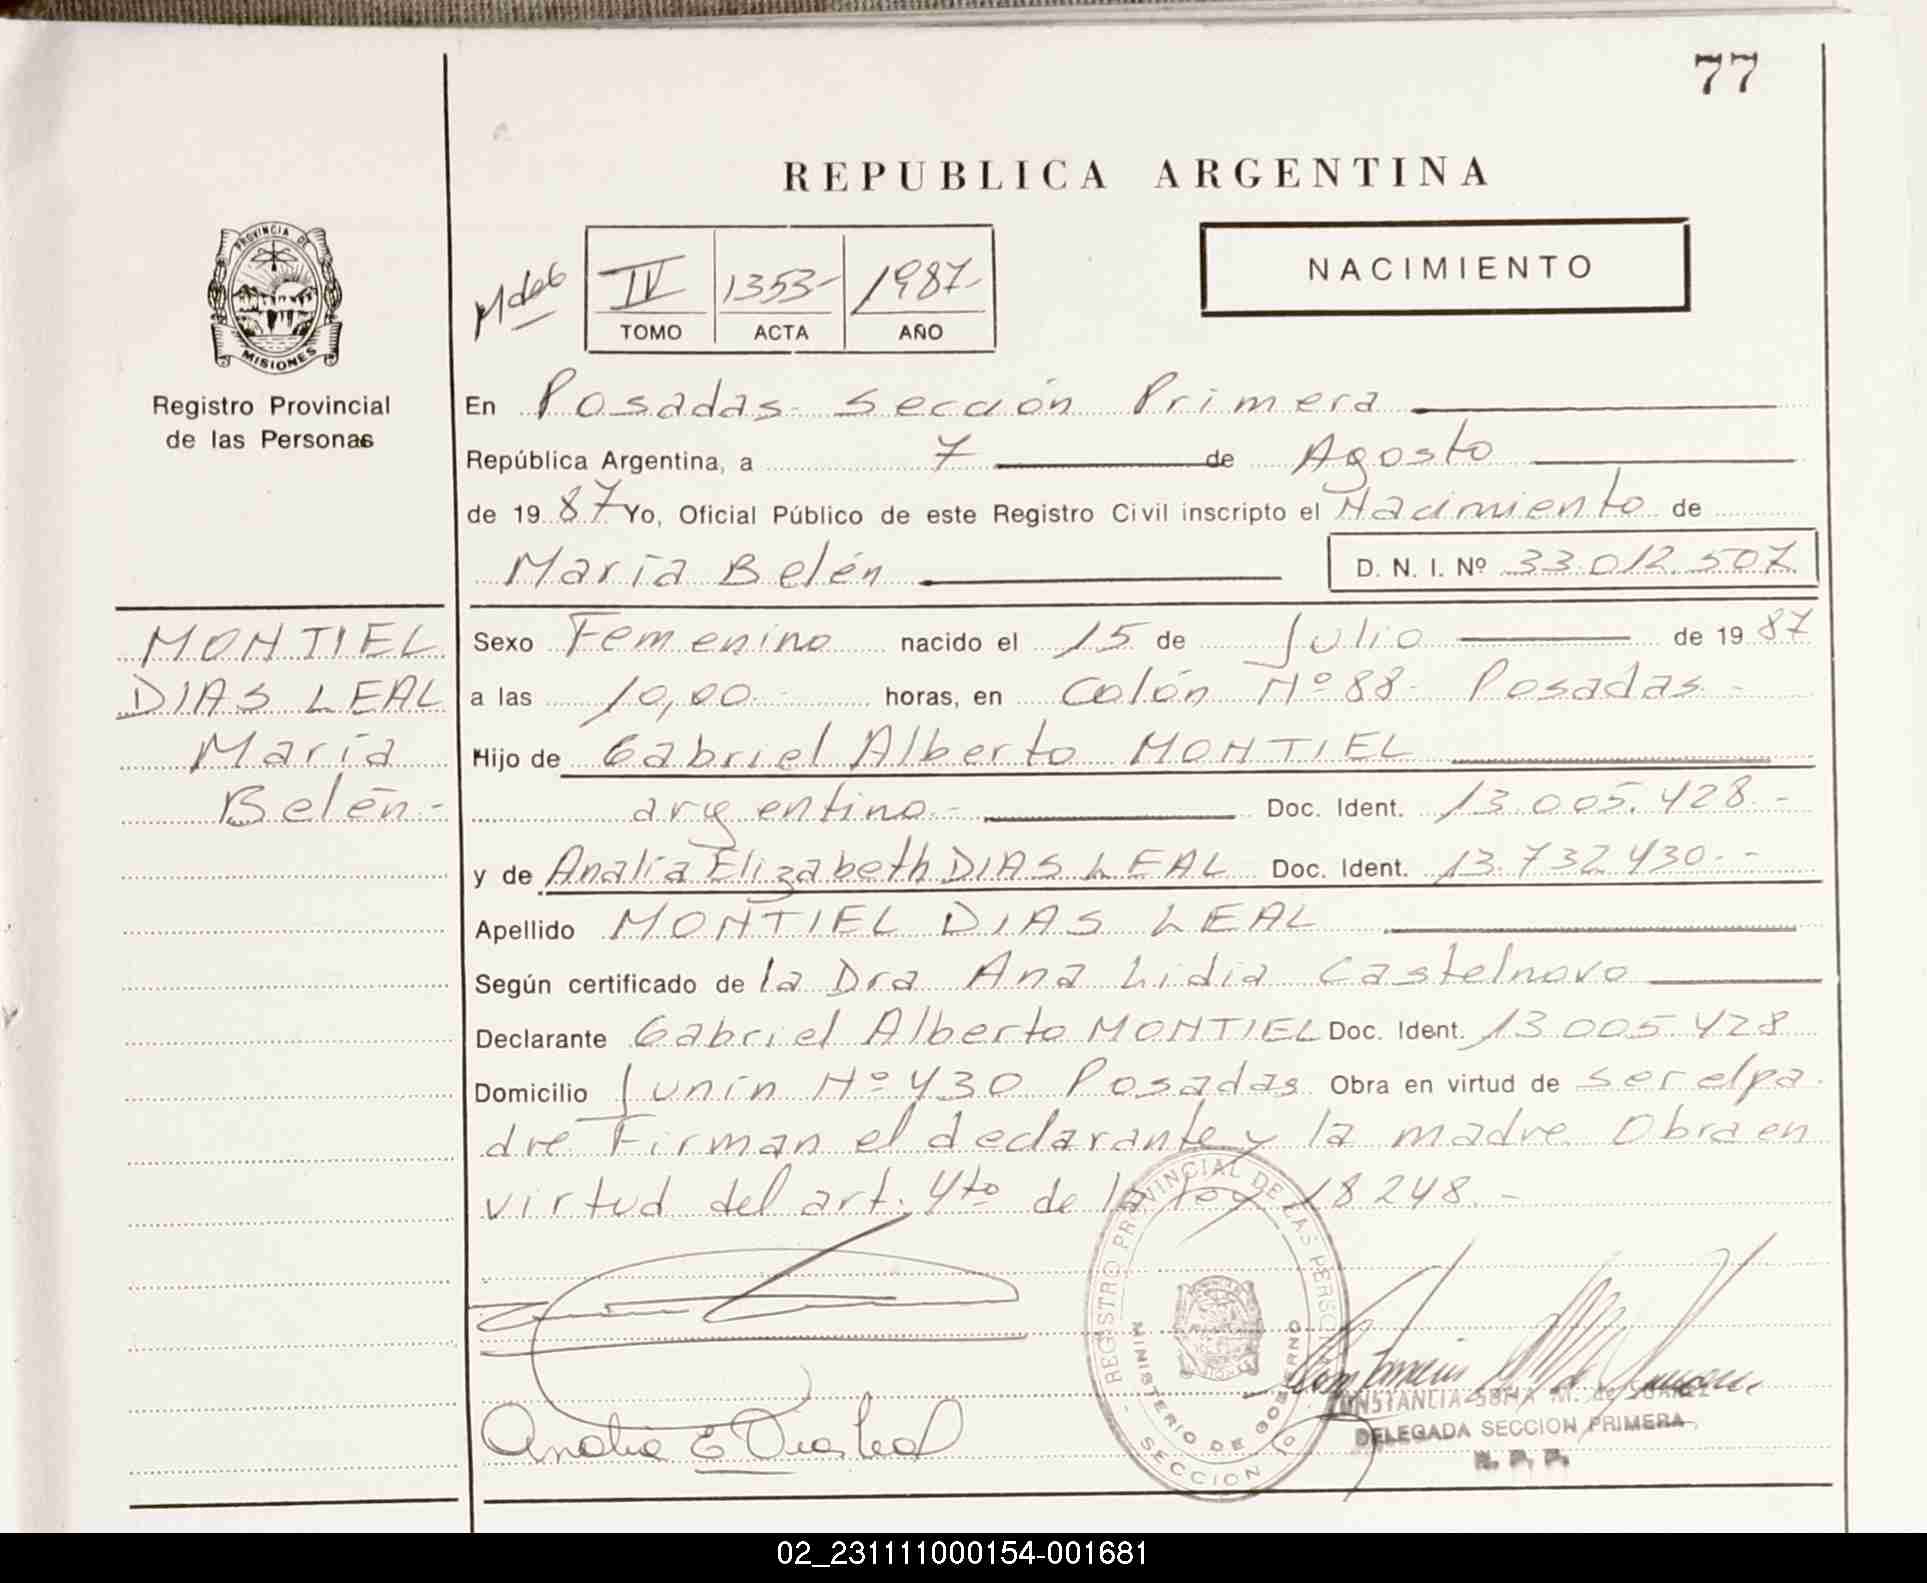 77
REPUBLICA ARGENTINA
PROVINCIA DE
MISIONES
Registro Provincial
de las Personas
IV 1353- 1987-
TOMO ACTA AÑO
NACIMIENTO
En Posadas Sección Primera
República Argentina, a 7 de Agosto
de 19 87 Yo, Oficial Público de este Registro Civil inscripto el Nacimiento de
María Belén D. N. I. Nº 33.012.507
MONTIEL
DIAS LEAL
María
Belén-
Sexo Femenino nacido el 15 de Julio de 19 87
a las 10,00 horas, en Colón Nº 88- Posadas-
Hijo de Gabriel Alberto MONTIEL
argentino- Doc. Ident. 13.005.428.-
y de Analía Elizabeth DIAS LEAL Doc. Ident. 13.732.430.-
Apellido MONTIEL DIAS LEAL
Según certificado de la Dra Ana Lidia Castelnovo
Declarante Gabriel Alberto MONTIEL Doc. Ident. 13.005.428
Domicilio Junín Nº 430 Posadas Obra en virtud de ser el pa
dre Firman el declarante y la madre. Obra en
virtud del art. 4to de la ley 18248.-
REGISTRO PROVINCIAL DE LAS PERSONAS
MINISTERIO DE GOBIERNO
SECCION 1º
Analia E Dias Leal
DELEGADA SECCION PRIMERA
R. P. P.
02_231111000154-001681